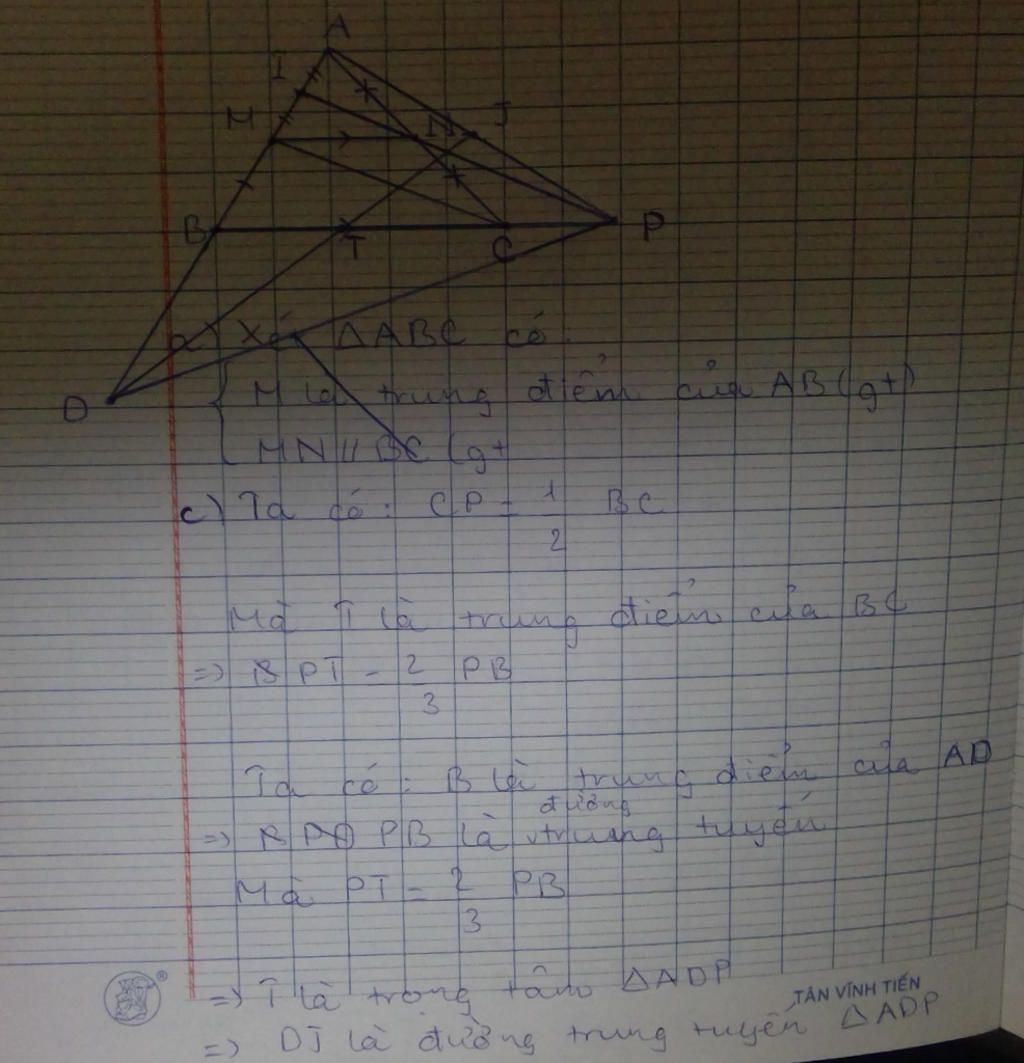 A
I
M N J
B T C P
D
a) Xét ΔABC có:
M là trung điểm của AB (gt)
MN // BC (gt
c) Ta có: CP = 1/2 BC
Mà T là trung điểm của BC
=> PT = 2/3 PB
Ta có: B là trung điểm của AD
=> PB là đường trung tuyến
Mà PT = 2/3 PB
=> T là trọng tâm ΔADP
TÂN VĨNH TIẾN
=> DJ là đường trung tuyến ΔADP